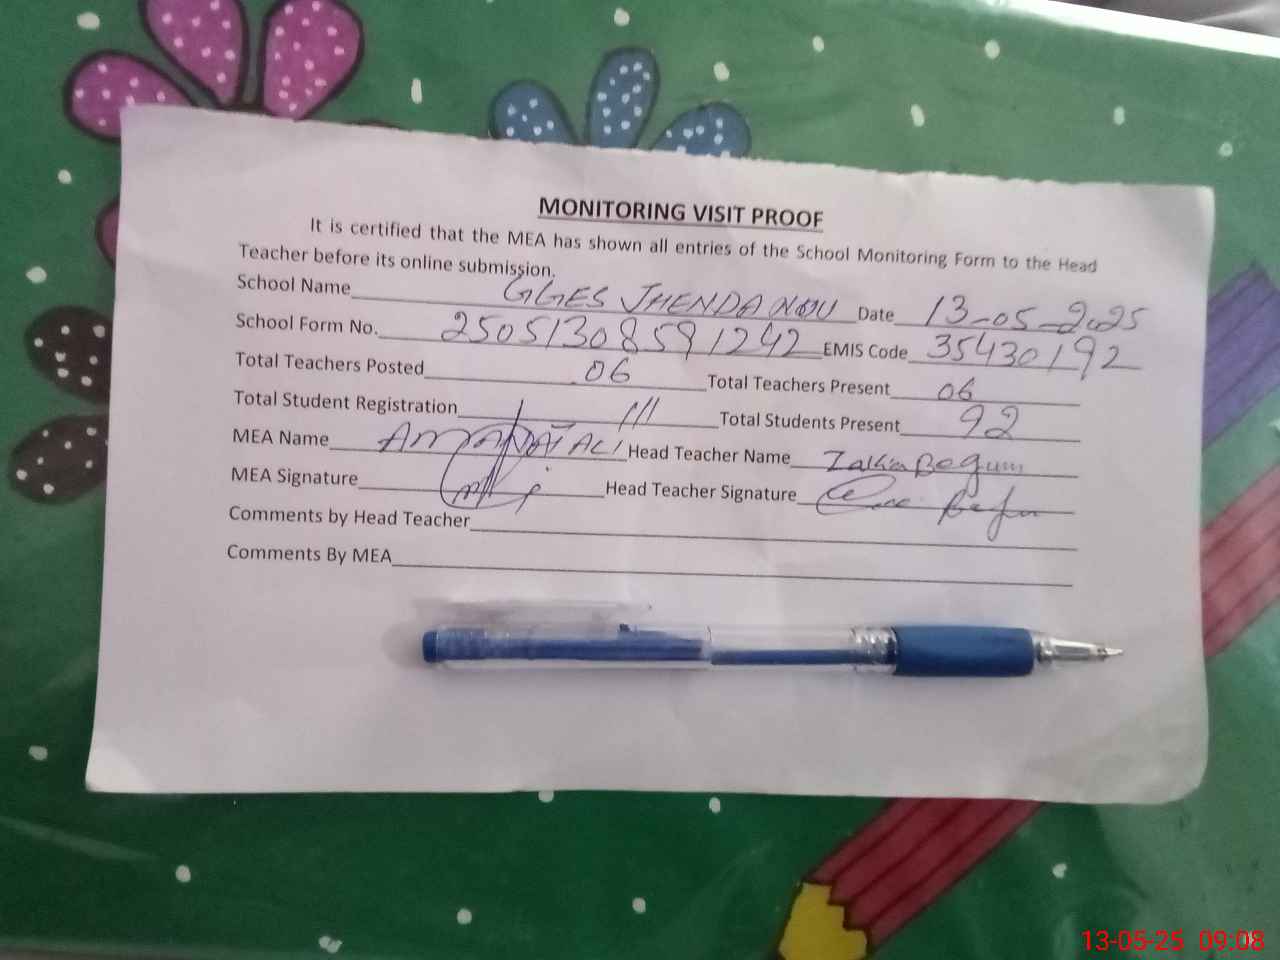 MONITORING VISIT PROOF
It is certified that the MEA has shown all entries of the School Monitoring Form to the Head
Teacher before its online submission.
School Name GGES JHENDA NOU Date 13-05-2025
School Form No. 25051308591242 EMIS Code 35430192
Total Teachers Posted 06 Total Teachers Present 06
Total Student Registration 111 Total Students Present 92
MEA Name AMANAT ALI Head Teacher Name Begum
MEA Signature Head Teacher Signature
Comments by Head Teacher
Comments By MEA
13-05-25 09:08